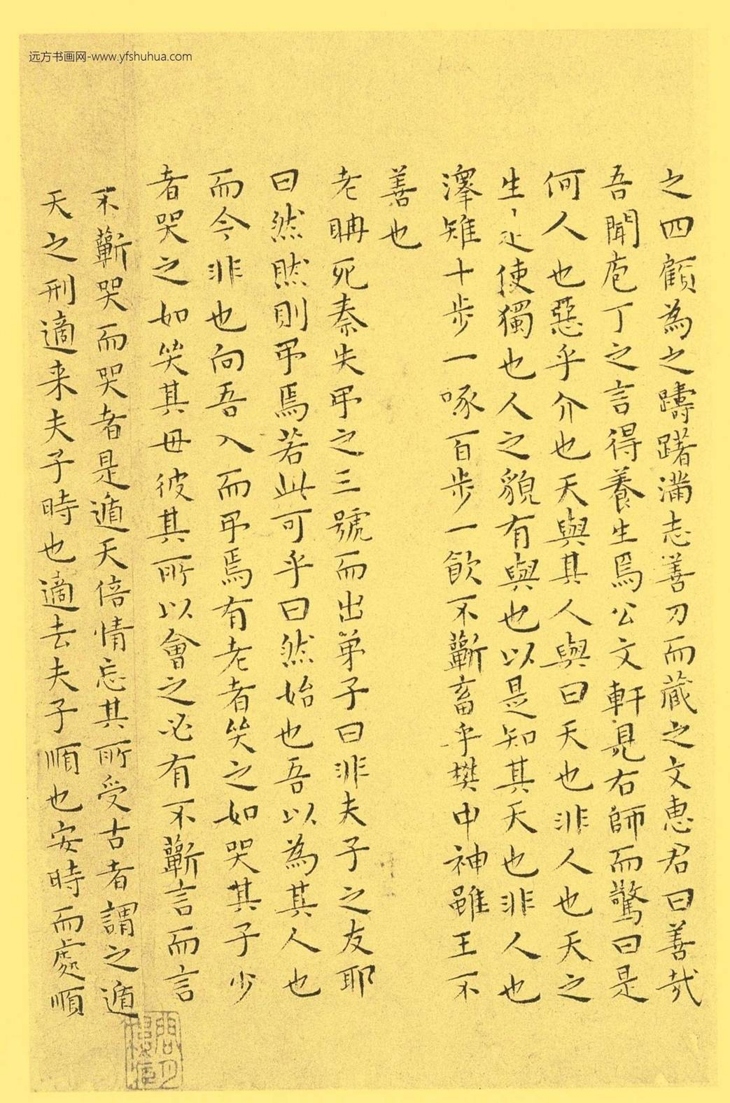 远方书画网-www.yfshuhua.com
之四顧為之躊躇滿志善刀而藏之文惠君曰善哉
吾聞庖丁之言得養生焉公文軒見右師而驚曰是
何人也惡乎介也天與其人與曰天也非人也天之
生之使獨也人之貌有與也以是知其天也非人也
澤雉十步一啄百步一飲不蘄畜乎樊中神雖王不
善也
老聃死秦失弔之三號而出弟子曰非夫子之友耶
曰然然則弔焉若此可乎曰然始也吾以為其人也
而今非也向吾入而弔焉有老者哭之如哭其子少
者哭之如哭其母彼其所以會之必有不蘄言而言
不蘄哭而哭者是遁天倍情忘其所受古者謂之遁
天之刑適来夫子時也適去夫子順也安時而處順